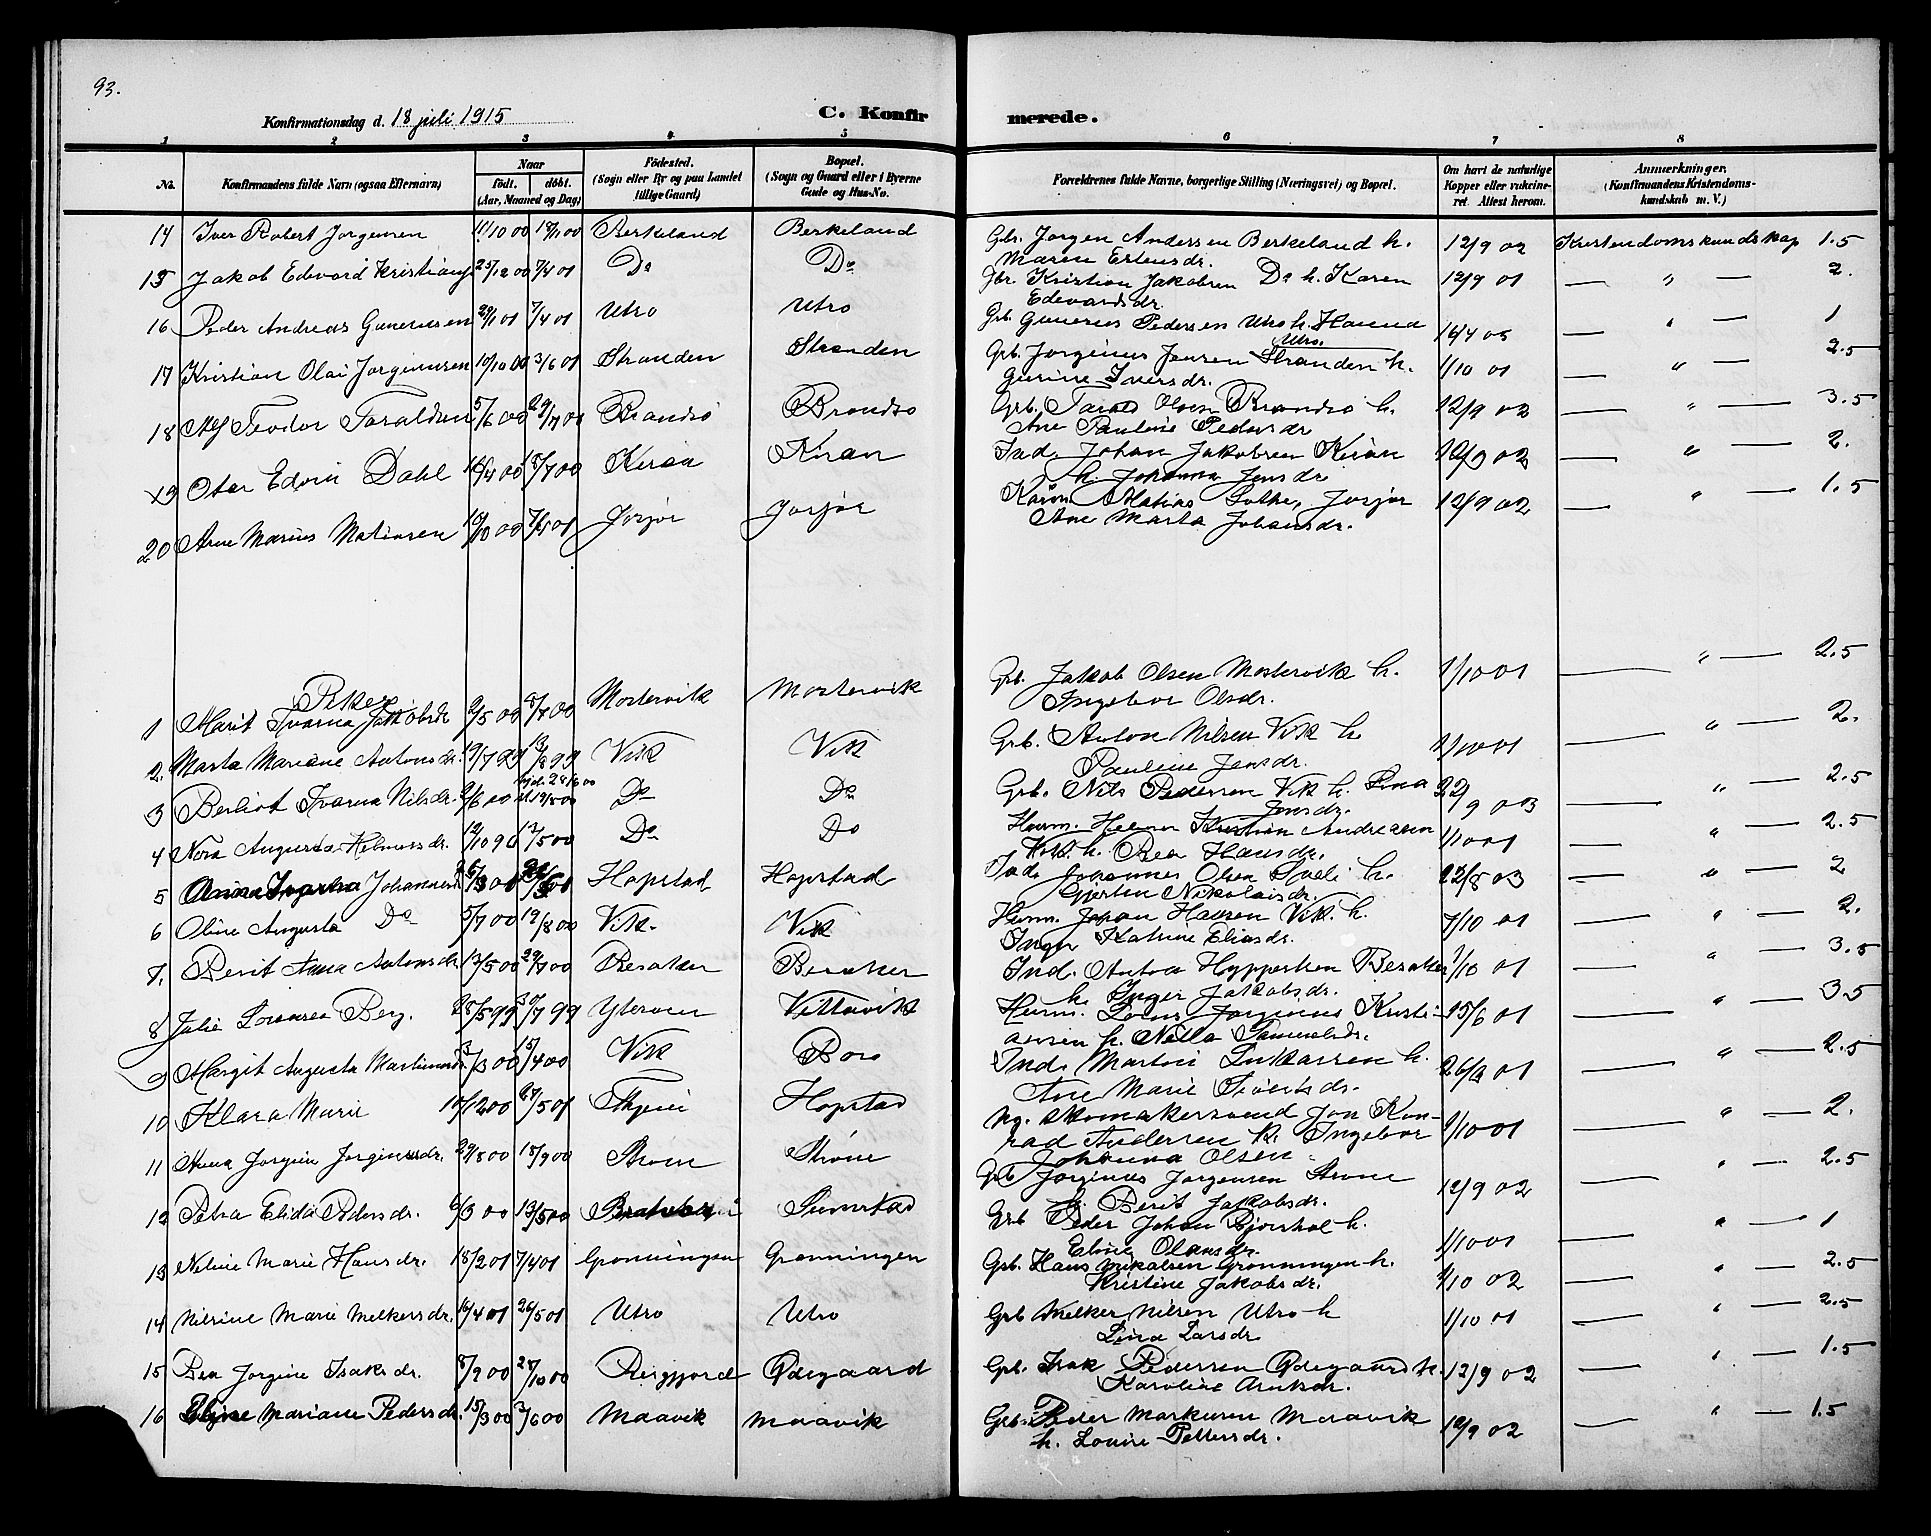 93.
Konfirmationsdag d. 18 juli 1915
C. Konfirmerede.
1 2 3 4 5 6 7 8
No. Konfirmandens fulde Navn (ogsaa Efternavn) Naar født. døbt. (Aar, Maaned og Dag) Fødested. (Sogn eller By og paa Landet tillige Gaard) Bopæl. (Sogn og Gaard eller i Byerne Gade og Hus-No. Forældrenes fulde Navne, borgerlige Stilling (Næringsvei) og Bopæl. Om havt de naturlige Kopper eller vakcineret. Attest herom. Anmærkninger. (Konfirmandens Kristendomskundskab m. V.)
14 Iver Robert Jorgensen 11/10 00 18/11 00 Berkeland Berkeland Gbr. Jorgen Andersen Berkeland h. 12/9 02 Kristendomskundskap 1.5
Maren Ertensdr.
15 Jakob Edvard Kristians 25/12 00 7/4 01 Do Do Gbr. Kristian Jakobsen Do h. Karen 12/9 01 — " — 2.
Edevardsdr.
16 Peder Andreas Gunerusen 29/1 01 7/4 01 Utro Utro Grb. Gunerus Pedersen Utro h. Hanna 16/4 05 — " — 1
17 Kristian Olai Jorginusen 19/10 00 3/6 01 Stranden Stranden Grb. Jorginus Jensen Stranden Utro. h. 1/10 01 — " — 2.5
Gurine Iversdr.
18 Alf Teodor Taraldsen 5/6 00 29/7 00 Brandsø Brandsø Grb. Tarald Olsen Brandsø h. 12/9 02 — " — 3.5
Ane Pauline Pedersdr
19 Otar Edvin Dahl 16/4 00 15/7 00 Kiran Kiran Ind. Johan Jakobsen Kiran 12/9 02 — " — 2.
h. Johanna Jensdr
20 Arne Marius Matiasen 16/10 00 7/4 01 Jørjør Jørjør Matias Jørjør 12/9 02 — " — 1.5
Ane Marta Johansdr.
Piker
1 Marit Ivarna Jakobsdr 2/5 00 8/7 00 Mostervik Mostervik Grb. Jakob Olsen Mostervik h. 1/10 01 — " — 2.5
Ingebor Olsdr.
2. Marta Mariane Antonsdr. 19/7 99 13/8 99 Vik Vik Grb. Anton Nilsen Vik h. 1/10 01 — " — 2.
Pauline Jensdr.
3 Berliot Ivarna Nilsdr. 2/6 00 Do Do Grb. Nils Pedersen Vik h. Lina 22/9 03 — " — 2.5
Jensdr.
4 Nora Augusta Helmersdr. 12/10 90 13/5 00 Do Do Husm. Helmer Kristian Andreasen 1/10 01 — " — 2.5
Vik h. Rea Hansdr.
5 Johannesdr Hopstad Hopstad Ind. Johannes Olsen h. 22/8 03 — " — 2
Gjertine Nikolaisdr.
6 Oline Augusta Do 5/7 00 19/8 00 Vik. Vik Husm. Johan Hansen Vik. h. 7/10 01 — " — 2.
Inger Katrine Eliasdr.
7. Berit Anna Antonsdr. 13/5 00 29/7 00 Besaker Besaker Ind. Anton Besaker 1/10 01 — " — 3.5
h. Inger Jakobsdr.
8 Julie Lovensea Berg. 28/5 99 30/7 99 Yterøen Vittavik Husm. Jorginus Kristi- 15/6 01 — " — 3.5
ansen h. Nella Samuelsdr.
9 Margit Augusta Martinusdr. 3/3 00 15/4 00 Vik Boro Ind. Martin Lukassen h. 26/9 01 — " — 2.5
Ane Marie Sivertsdr.
10 Klara Marie 10/12 00 27/5 01 Hopstad Ug. Skomakersvend Jon Kon- 1/10 01 — " — 2.
rad Andersen h. Ingebor
Johanna Olsen
11 Anna Jorgine Jorginusdr. 29/8 00 18/9 00 Strøm Strøm Grb Jorginus Jorgensen Strøm 12/9 02 — " — 2.5
h. Berit Jakobsdr.
12 Petra Elida Pedersdr. 6/3 00 13/5 00 Sumstad Grb Peder Johan Bjørskal h. 1/10 01 — " — 1
Eline Olausdr.
13 Neline Marie Hansdr. 18/2 01 7/4 01 Grønningen Grønningen Grb. Hans Mikalsen Grønningen h. 1/10 02 — " — 2.5
Kristine Jakobsdr.
14 Nilsine Marie Melkersdr. 16/4 01 26/5 01 Utro Utro Grb Melker Nilsen Utro h 1/10 01 — " — 2.5
Lina Larsdr
15 Bea Jorgine Isaksdr. 8/9 00 28/10 00 Reigfjord Ødegaard Grb. Isak Pedersen Ødegaard h. 12/9 02 — " — 1.5
Karoline Arntsdr.
16 Mariane Pedersdr. 15/3 00 3/6 00 Maavik Maavik Grb. Peder Markusen Maavik 12/9 02 — " — 1.5
h. Lovise Pettersdr.